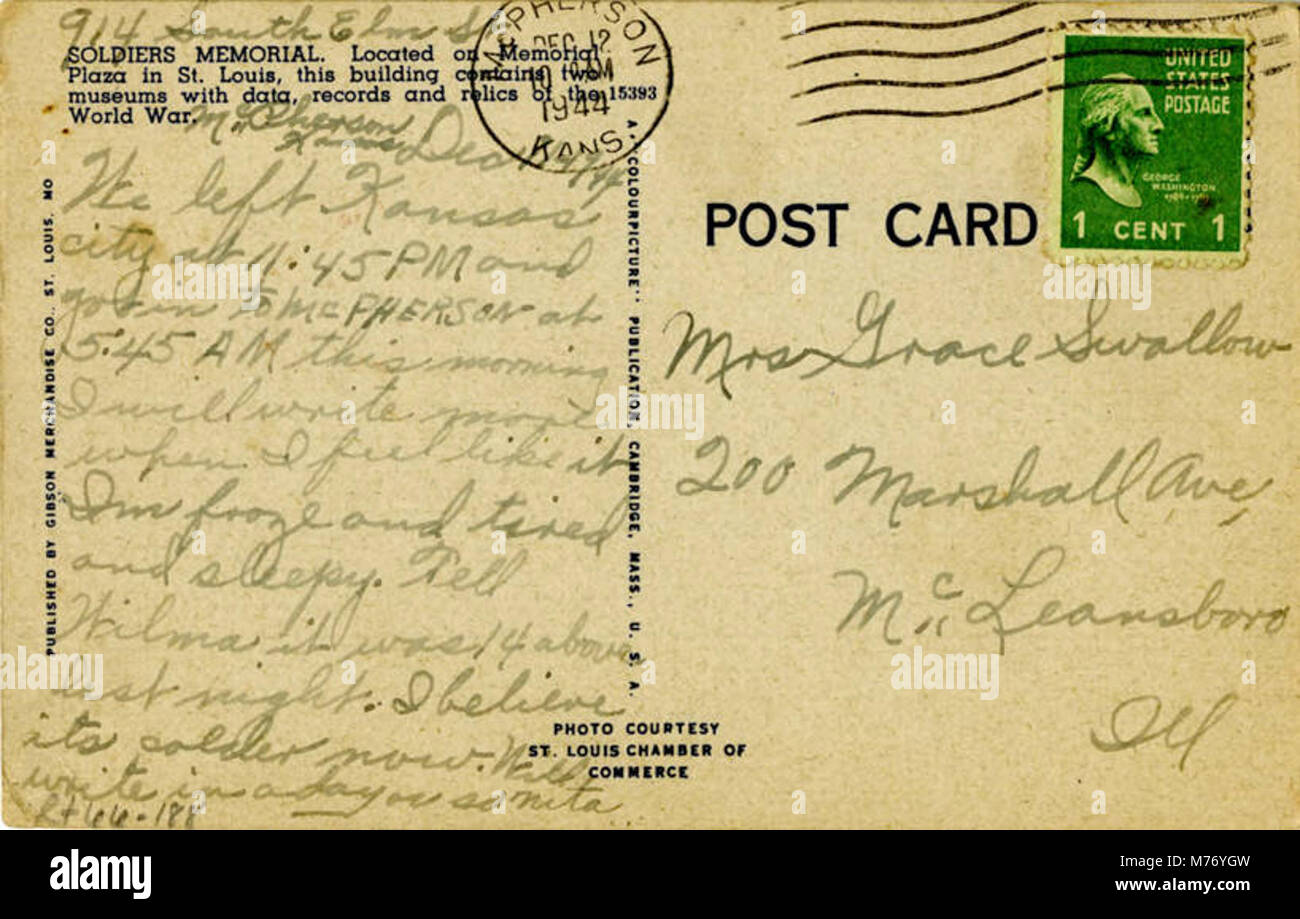 914 South Elm St
SOLDIERS MEMORIAL. Located on Memorial
Plaza in St. Louis, this building contains two
museums with data, records and relics of the 15393
World War.
McPherson
Kans
Dec
We left Kansas
city at 11:45 PM and
got in to McPHERSON at
5:45 AM this morning
I will write more
when I feel like it
Im froze and tired
and sleepy. Tell
Wilma it was 14 above
last night. I believe
its colder now. Will
write in a day or so
Rt66-188
PUBLISHED BY GIBSON MERCHANDISE CO., ST. LOUIS, MO
A "COLOURPICTURE" PUBLICATION, CAMBRIDGE, MASS., U. S. A.
PHOTO COURTESY
ST. LOUIS CHAMBER OF
COMMERCE
McPHERSON
DEC 12
PM
1944
KANS.
UNITED
STATES
POSTAGE
GEORGE
WASHINGTON
1 CENT 1
POST CARD
Mrs Grace Swallow
200 Marshall Ave,
Mc Leansboro
Ill
alamy
alamy
alamy
alamy
alamy
alamy
alamy
Image ID: M76YGW
www.alamy.com